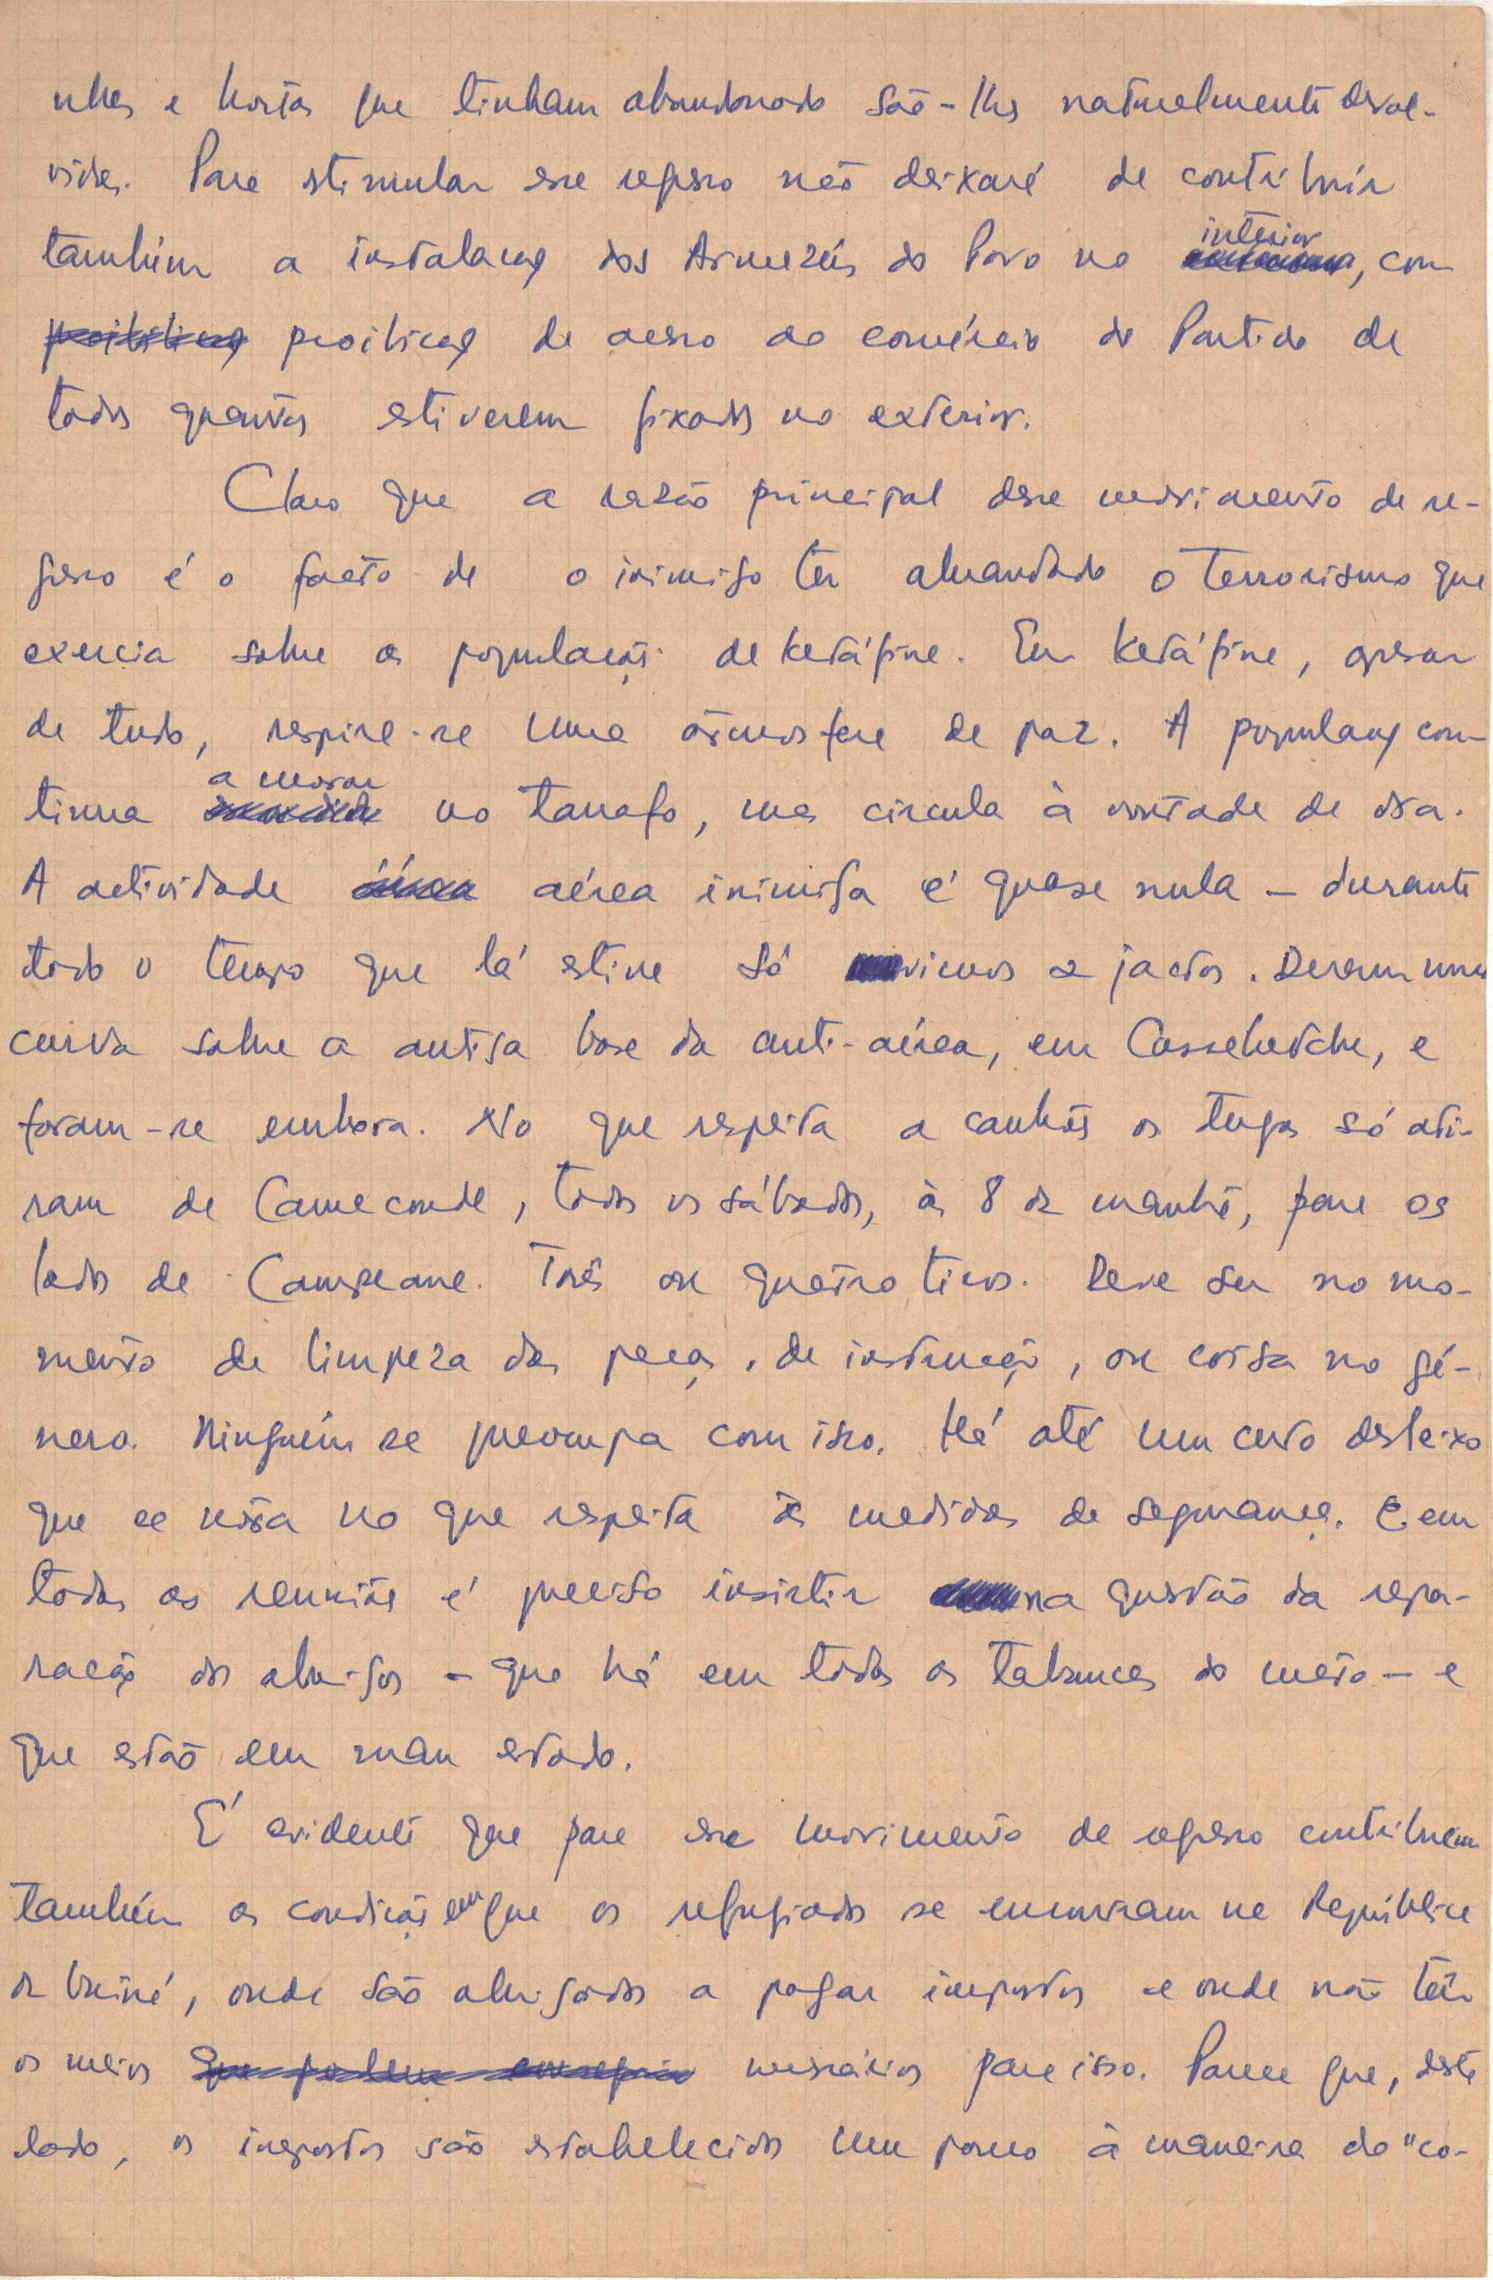 nhas e hortas que tinham abandonado são-lhes naturalmente devol-
vidas. Para estimular esse regresso não deixará de contribuir
também a instalação dos Armazéns do Povo no interior, com
proibição proibição de acesso ao comércio do Partido de
todos quantos estiverem fixados no exterior.
Claro que a razão principal desse movimento de re-
gresso é o facto de o inimigo ter abrandado o terrorismo que
exercia sobre as populações de Ketáfine. Em Ketáfine, apesar
de tudo, respira-se uma atmosfera de paz. A população con-
tinua a morar no tarrafo, mas circula à vontade de dia.
A actividade aérea inimiga é quase nula — durante
todo o tempo que lá estive só vimos 2 jactos. Deram uma
curva sobre a antiga base da anti-aérea, em Cassebetche, e
foram-se embora. No que respeita a canhões os tugas só ati-
ram de Cameconde, todos os sábados, às 8 da manhã, para os
lados de Campeane. Três ou quatro tiros. Deve ser no mo-
mento de limpeza das peças, de instrução, ou coisa no gé-
nero. Ninguém se preocupa com isso. Há até um certo desleixo
que se nota no que respeita às medidas de segurança. E em
todas as reuniões é preciso insistir na questão da repa-
ração dos abrigos — que há em todas as tabancas do mato — e
que estão em mau estado.
É evidente que para esse movimento de regresso contribuem
também as condições em que os refugiados se encontram na República
da Guiné, onde são obrigados a pagar impostos e onde não têm
os meios que podem conseguir necessários para isso. Parece que, deste
lado, os impostos são estabelecidos um pouco à maneira do "co-